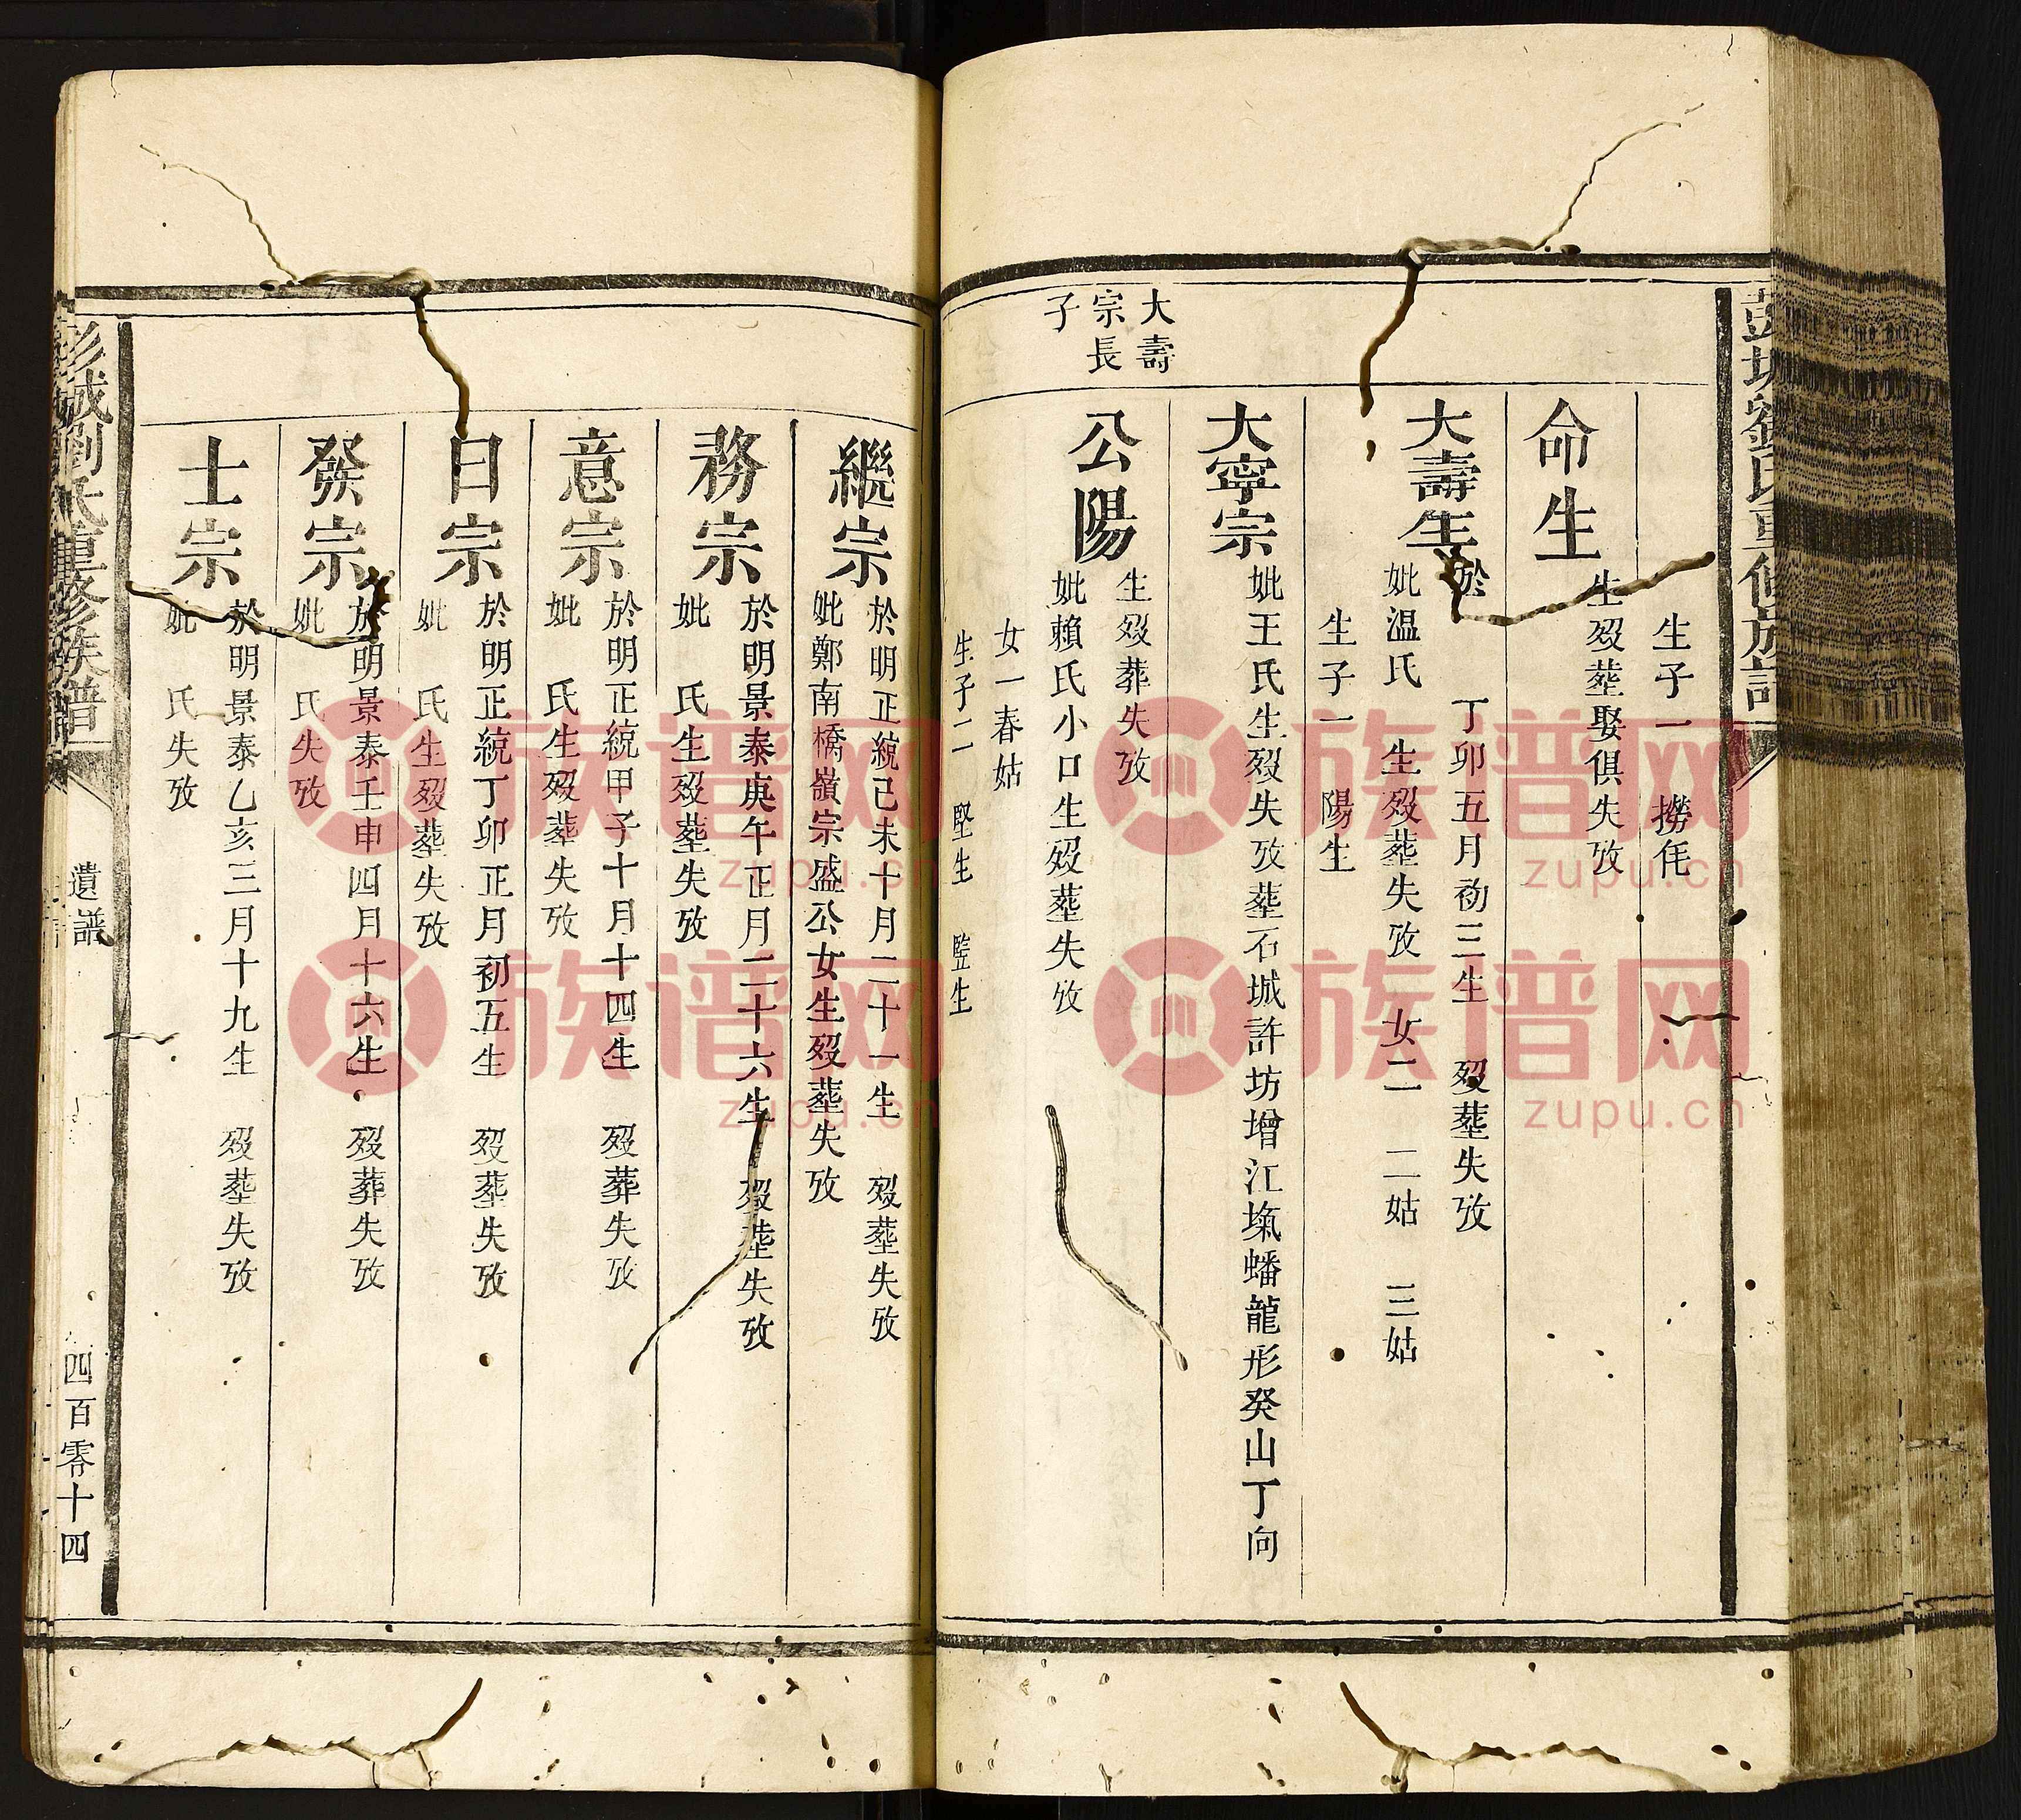 生子一 撈㐌
命生
生歿塟娶俱失攷
大壽生
於 丁卯五月初三生 歿塟失攷
妣温氏 生歿塟失攷 女二 二姑 三姑
生子一 陽生
大寧宗
妣王氏生歿失攷塟石城許坊增江㙗蟠龍形癸山丁向
大壽
宗長
子
公陽
生歿葬失攷
妣賴氏小口生歿塟失攷
女一春姑
生子二 堅生 監生
繼宗
於明正統己未十月二十一生 歿塟失攷
妣鄭南橋嶺宗盛公女生歿塟失攷
務宗
於明景泰庚午正月二十六生 歿塟失攷
妣 氏生歿塟失攷
意宗
於明正統甲子十月十四生 歿葬失攷
妣 氏生歿塟失攷
日宗
於明正統丁卯正月初五生 歿塟失攷
妣 氏生歿塟失攷
發宗
於明景泰壬申四月十六生 歿葬失攷
妣 氏失攷
士宗
於明景泰乙亥三月十九生 歿塟失攷
妣 氏失攷
彭城劉氏重修族譜
遺譜
四百零十四
族谱网
zupu.cn
族谱网
zupu.cn
族谱网
zupu.cn
族谱网
zupu.cn